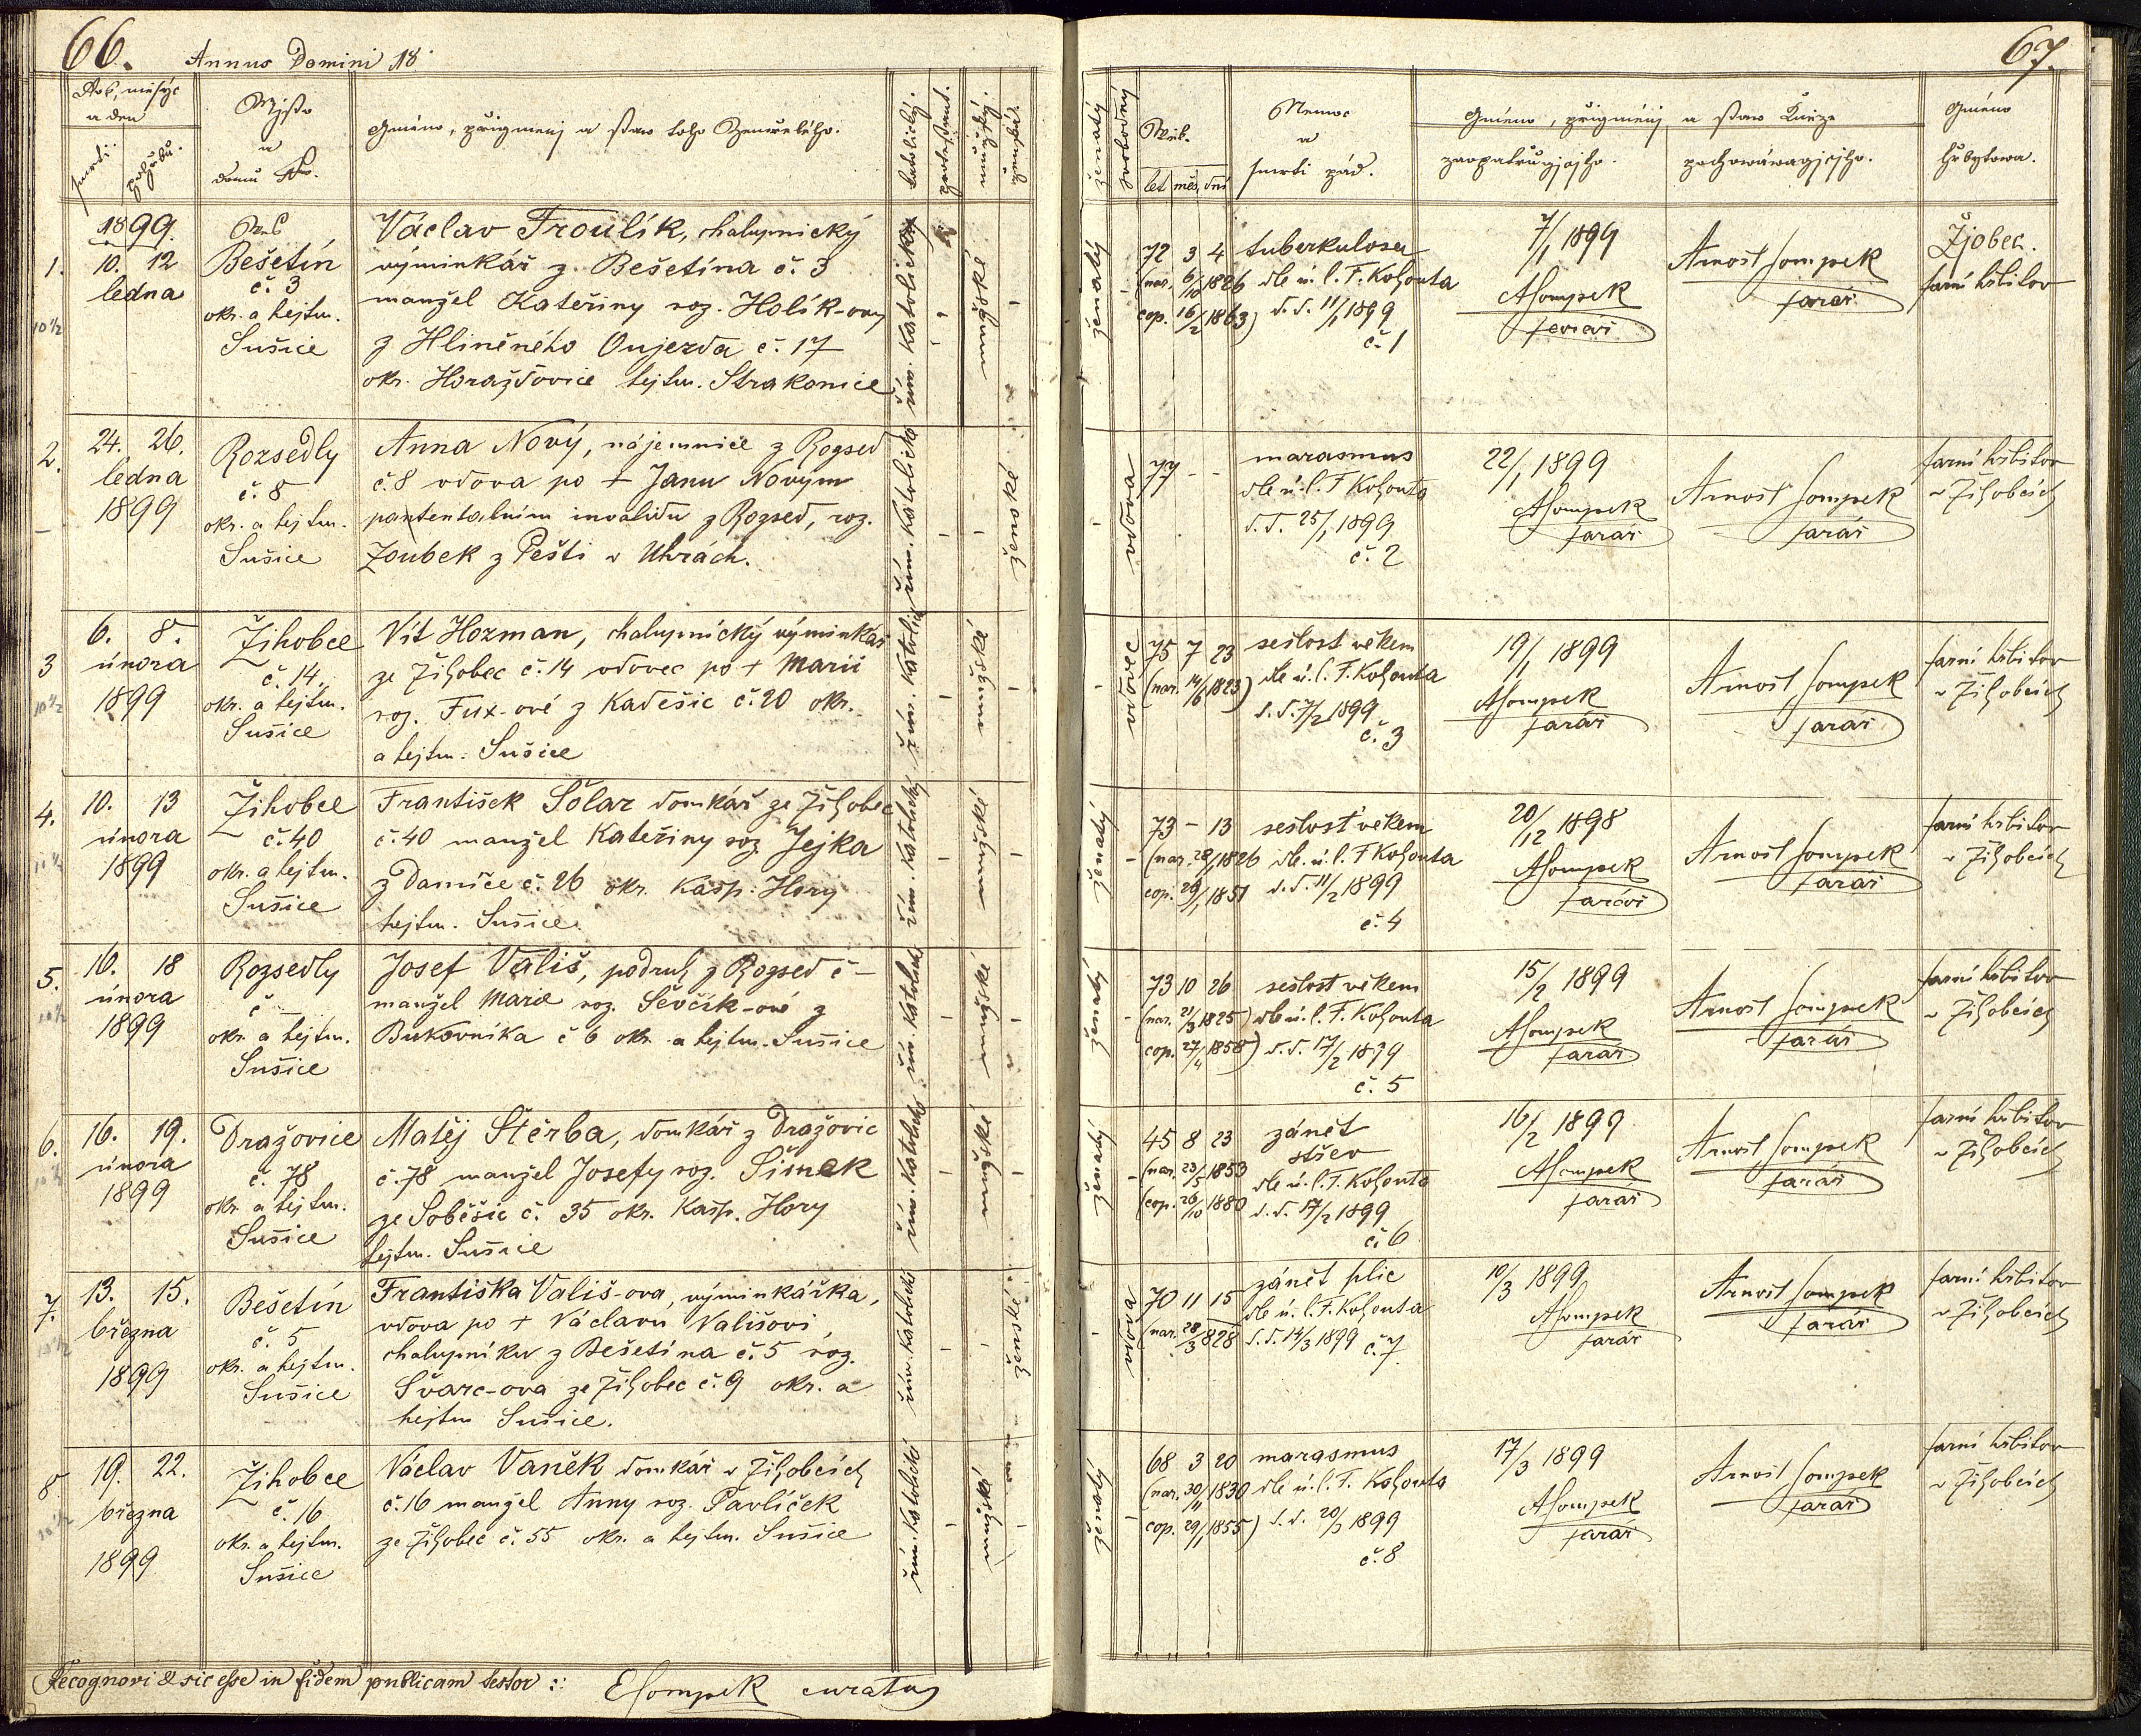 66.
Annus Domini 18
Rok, měsýc
a den
smrti
pohřbu.
Mjsto
a
domu Nro.
Gméno, přigmenj a staw toho Zemřelého.
katolický.
protestant.
mužský.
ženská.
1.
1899.
10. 12
ledna
10 1/2
Bešetín
č. 3
okr. a hejtm.
Sušice
Václav Froulík, chalupnický
výminkář z Bešetína č. 3
manžel Kateřiny roz. Holík-ovy
z Hliněného Oujezda č. 17
okr. Horažďovice hejtm. Strakonice
řím. katolický
mužské
2.
24. 26.
ledna
1899
Rozsedly
č. 8
okr. a hejtm.
Sušice
Anna Nový, nájemnice z Rozsed
č. 8 vdova po + Janu Novým
patentálním invalidu z Rozsed, roz.
Zoubek z Pešti v Uhrách.
řím. katolické
ženské
3
6. 8.
února
1899
10 1/2
Žihobce
č. 14.
okr. a hejtm.
Sušice
Vít Hozman, chalupnický výminkář
ze Žihobec č. 14 vdovec po + Marii
roz. Fux-ové z Kadešic č. 20 okr.
a hejtm. Sušice
řím. katolické
mužské
4.
10. 13
února
1899
Žihobce
č. 40
okr. a hejtm.
Sušice
František Šolar domkář ze Žihobec
č. 40 manžel Kateřiny roz. Jejka
z Damíče č. 26 okr. Kašp. Hory
hejtm. Sušice.
řím. katolický
mužské
5.
16. 18
února
1899
Rozsedly
č
okr. a hejtm.
Sušice
Josef Vališ, podruh z Rozsed č –
manžel Marie roz. Ševčík-ové z
Bukovníka č 6 okr. a hejtm. Sušice
řím. katolické
mužské
6.
16. 19.
února
1899
Dražovice
č. 78
okr. a hejtm.
Sušice
Matěj Štěrba, domkář z Dražovic
č. 78 manžel Josefy roz. Šimek
ze Soběšic č. 35 okr. Kašp. Hory
hejtm. Sušice
řím. katolické
mužské
7.
13. 15.
března
1899
Bešetín
č. 5
okr. a hejtm.
Sušice
Františka Vališ-ova, výminkářka,
vdova po + Václavu Vališovi,
chalupníku z Bešetína č. 5 roz.
Švarc-ova ze Žihobec č. 9 okr. a
hejtm Sušice.
řím. katolické
ženské
8
19. 22.
března
1899
Žihobce
č. 16
okr. a hejtm.
Sušice
Václav Vaněk domkář v Žihobcích
č. 16 manžel Anny roz. Pavlíček
ze Žihobec č. 55 okr. a hejtm. Sušice
řím. katolické
mužské
Recognovi & sic esse in fidem publicam testor :
ESompek curatus
67.
ženatý
svobodný
Wěk.
let měs. dní
Nemoc
a
smrti pád.
Gméno, přigménj a staw Kněze
zaopatrůgjcýho.
pochowáwagjcýho.
Gméno
hřbytowa.
ženatý
72 3 4
(nar. 6/10 1826
cop. 16/2 1863)
tuberkulosa
dle ú. l. F. Kohouta
d. d. 11/1 1899
č. 1
7/1 1899
ASompek
farář
Arnošt Sompek
farář
Žjobec.
farní hřbitov
vdova
77 - -
marasmus
dle ú. l. F Kohouta
d. d. 25/1 1899
č. 2
22/1 1899
ASompek
farář
Arnošt Sompek
farář
farní hřbitov
v Žihobcích
vdovec
75 7 23
(nar. 14/6 1823)
sešlost věkem
dle ú. l. F. Kohouta
d. d. 7/2 1899
č. 3
19/1 1899
ASompek
farář
Arnošt Sompek
farář
farní hřbitov
v Žihobcích
ženatý
73 – 13
(nar. 28/1 1826
cop. 29/1 1851
sešlost věkem
dle. ú. l. F Kohouta
d. d. 11/2 1899
č. 4
20/12 1898
ASompek
farář
Arnošt Sompek
farář
farní hřbitov
v Žihobcích
ženatý
73 10 26
(nar. 21/3 1825)
cop. 27/4 1858)
sešlost věkem
dle ú. l. F. Kohouta
d. d. 17/2 1899
č. 5
15/2 1899
ASompek
farář
Arnošt Sompek
farář
farní hřbitov
v Žihobcích
ženatý
45 8 23
(nar. 23/5 1853
(cop. 26/10 1880
zánět
střev
dle ú. l. F. Kohouta
d. d. 17/2 1899
č. 6
16/2 1899
ASompek
farář
Arnošt Sompek
farář
farní hřbitov
v Žihobcích
vdova
70 11 15
(nar. 28/3 828
zánět plic
dle ú. l. F. Kohouta
d. d. 14/3 1899 č. 7.
10/3 1899
ASompek
farář
Arnošt Sompek
farář
farní hřbitov
v Žihobcích
ženatý
68 3 20
(nar. 30/11 1830
cop. 29/1 1855)
marasmus
dle ú. l. F. Kohouta
d. d. 20/3 1899
č. 8
17/3 1899
ASompek
farář
Arnošt Sompek
farář
farní hřbitov
v Žihobcích